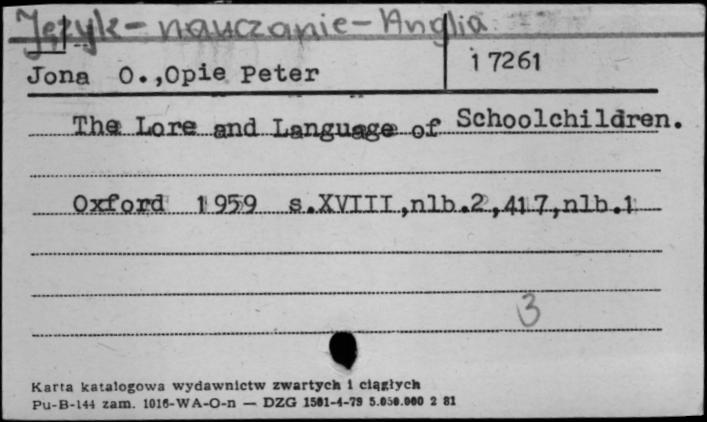 Język - nauczanie - Anglia
Jona O.,Opie Peter
i 7261
The Lore and Language of Schoolchildren.
Oxford 1959 s.XVIII,nlb.2,417,nlb.1
3
Karta katalogowa wydawnictw zwartych i ciągłych
Pu-B-144 zam. 1016-WA-O-n — DZG 1501-4-79 5.050.000 2 81